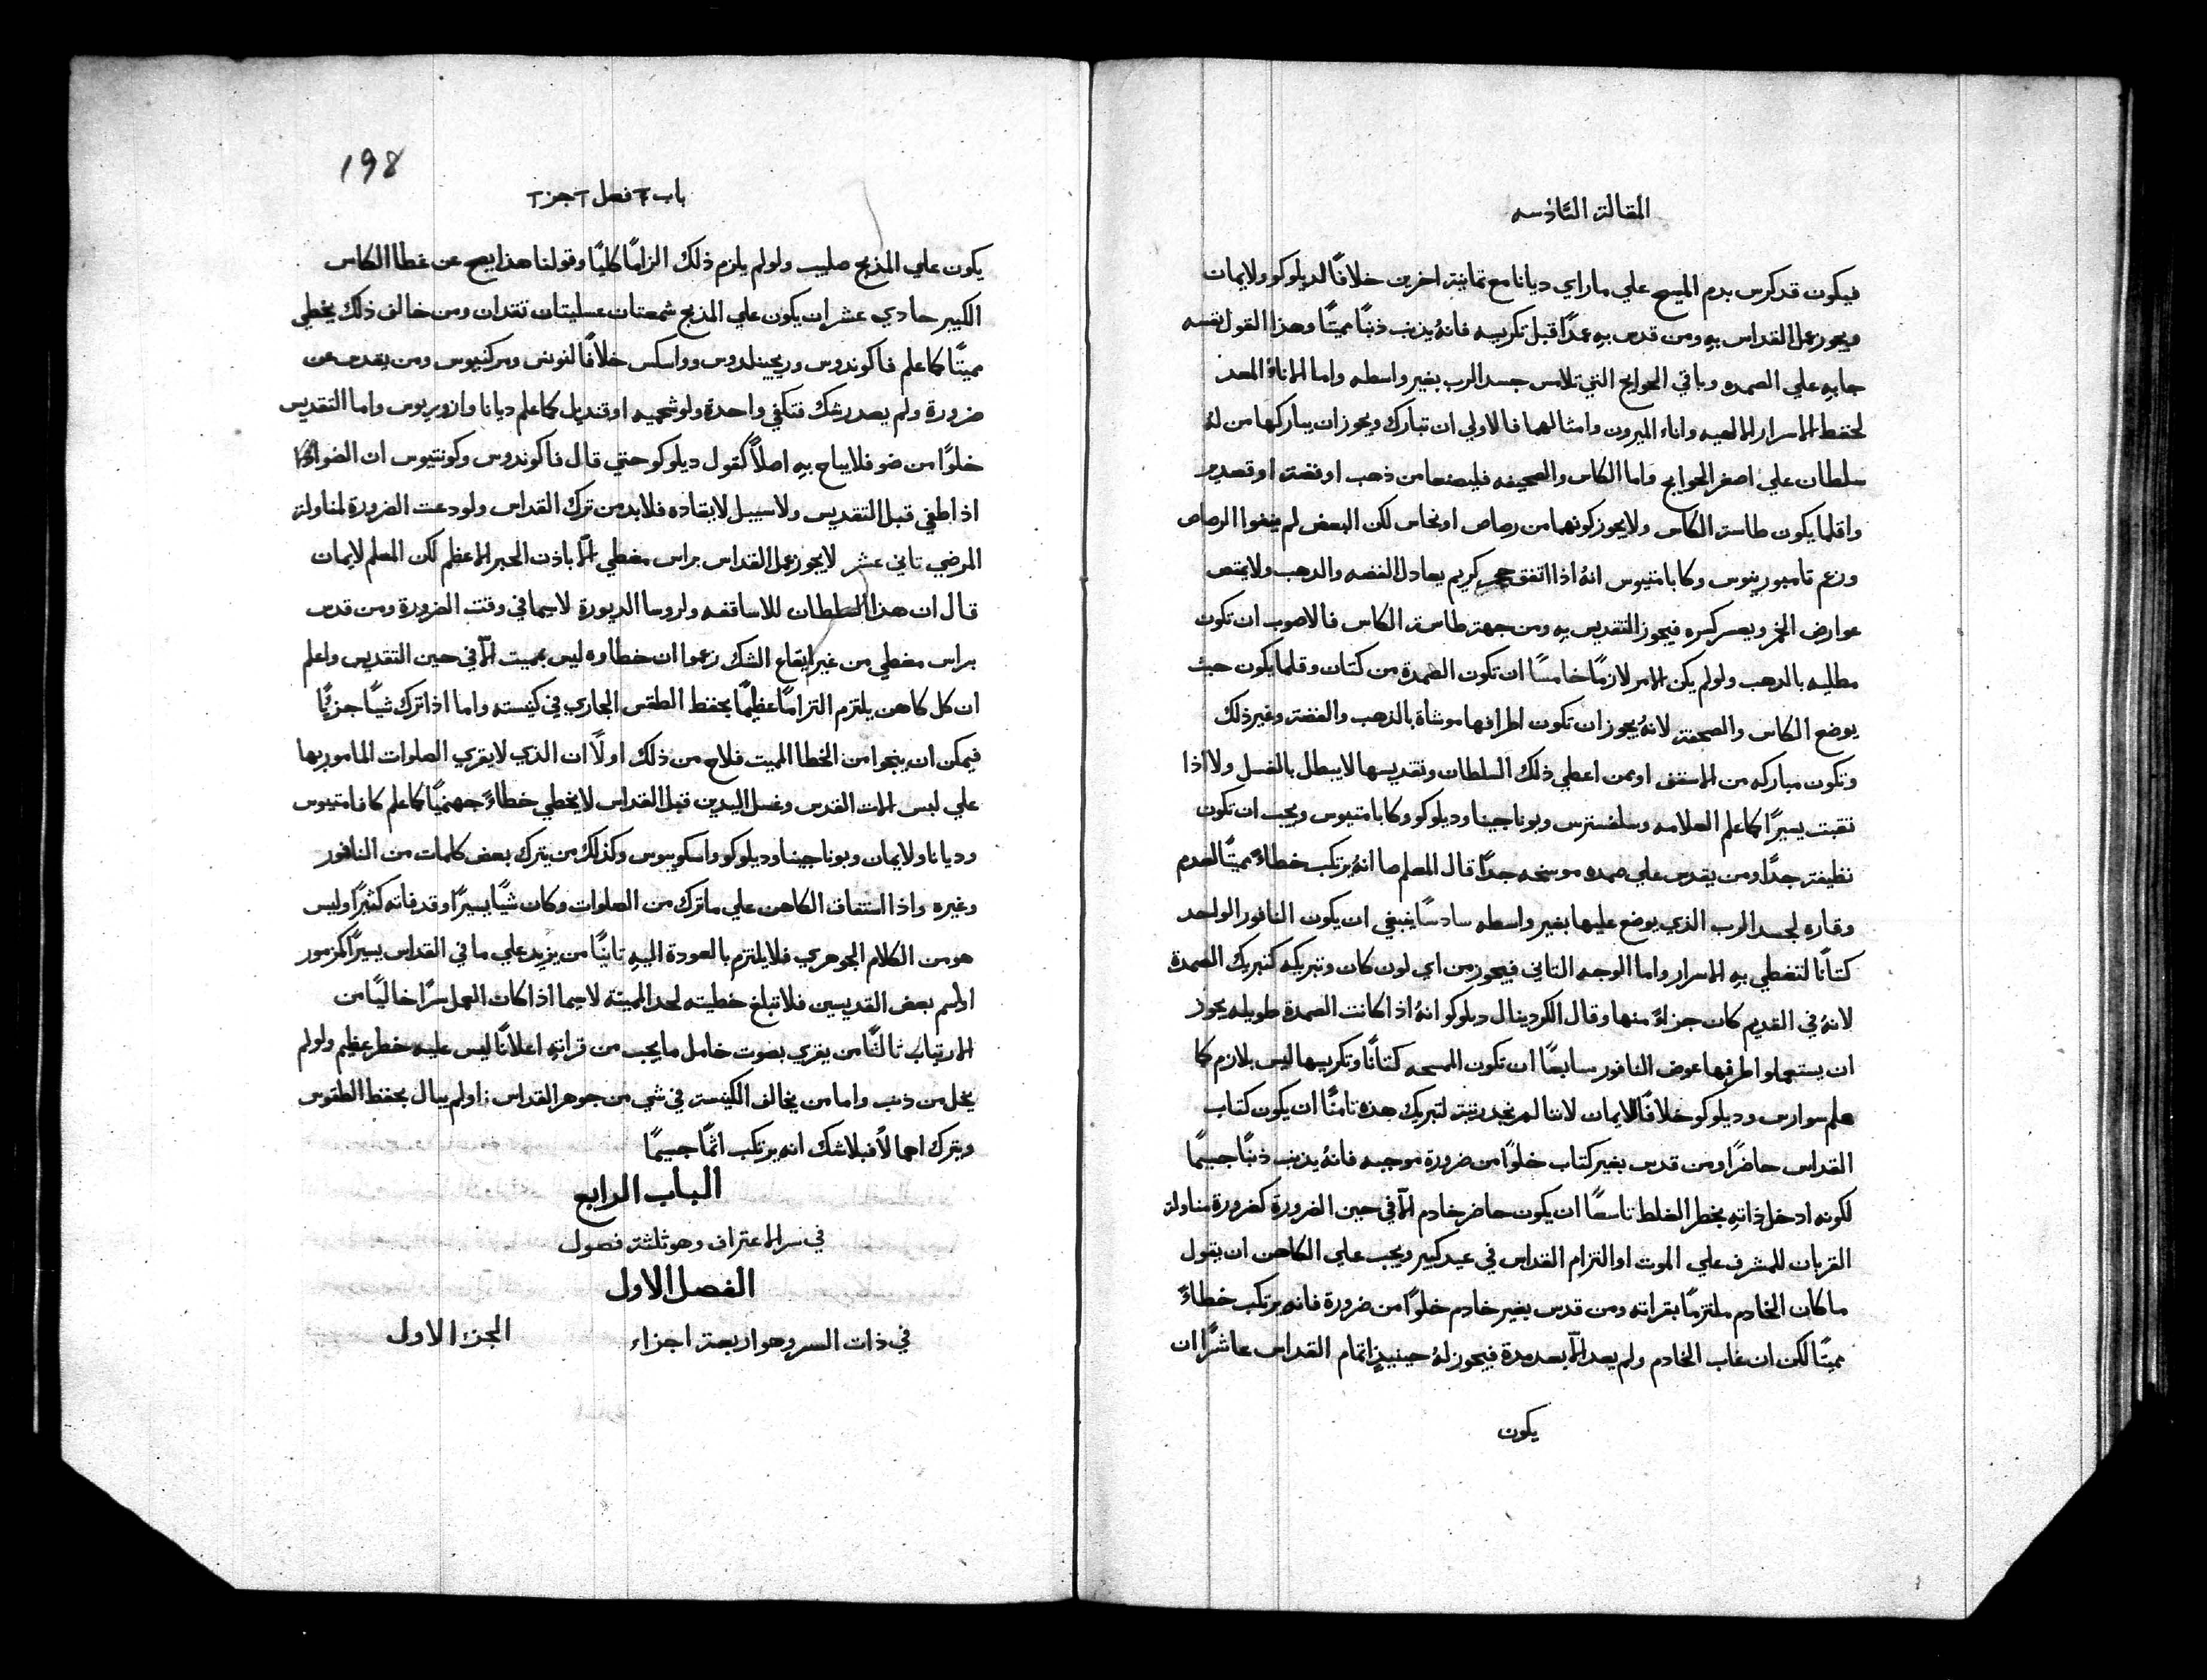 المقالة السادسه
فيكون قد كرس بدم المسيح علي ما راي ديانا مع ثمانية اخرين خلافًا لديلوكو ولايمان
ويجوز عمل القداس به ومن قدس به عمدًا قبل تكريسه فانهُ يذنب ذنبًا مميتًا وهذا القول نفسه
جايه علي الصمده وباقي الحوايج التي تلامس جسد الرب بغير واسطه واما الاناءُ المعد
لحفظ الاسرار الالهيه واناء الميرون وامثالهما فالاولي ان تبارك ويجوز ان يباركها من لهُ
سلطان علي اصغر الحوايج واما الكاس والصحيفه فليصنعا من ذهب او فضة او قصدير
واقلما يكون طاسة الكاس ولا يجوز كونهما من رصاص او نحاس لكن البعض لم ينفوا الرصاص
وزعم تامبورينوس وكابامتيوس انهُ اذا اتفق حجر كريم يعادل الفضه والدهب ولا يمتص
عوارض الخمر ويعسر كسره فيجوز التقديس به ومن جهة طاسة الكاس فالاصوب ان تكون
مطليه بالدهب ولو لم يكن الامر لازمًا خامسًا ان تكون الصمدة من كتان وقلما يكون حيث
يوضع الكاس والصحفة لانهُ يجوز ان تكون اطرافها موشاة بالذهب والفضة وغير ذلك
وتكون مباركه من الاسقف او ممن اعطي ذلك السلطان وتقديسها لا يبطل بالغسل ولا اذا
نقبت يسيرًا كما علم العلامه وسلفسترس وبوناجينا وديلوكو وكابامتيوس ويجب ان تكون
نظيفة جدًا ومن يقدس علي صمده موسخه جدًا قال المعلم صا انهُ يرتكب خطاءً مميتًا لعدم
وقاره لجسد الرب الذي يوضع عليها بغير واسطه سادسًا ينبغي ان يكون النافور الواحد
كتانًا لتغطي به الاسرار واما الوجه التاني فيجوز من اي لون كان وتبريكه كتبريك الصمدة
لانهُ في القديم كان جزاءً منها وقال الكردينال ديلوكو انهُ اذا كانت الصمدة طويله يجوز
ان يستعملوا طرفها عوض النافور سابعًا ان تكون المسحه كتانًا وتكريسها ليس بلازم كما
علم سوارس وديلوكو خلافًا لايمان لاننا لم نجد رتبة لتبريك هذه تامنًا ان يكون كتاب
القداس حاضرًا ومن قدس بغير كتاب خلوًا من ضرورة موجبه فانهُ يذنب ذنبًا جسيمًا
لكونه ادخل ذاته بخطر الغلط تاسعًا ان يكون حاضر خادم الّا في حين الضرورة كضرورة مناولة
القربان للمشرف علي الموت او التزام القداس في عيد كبير ويجب علي الكاهن ان يقول
ما كان الخادم ملتزمًا بقراته ومن قدس بغير خادم خلوًا من ضرورة فانه يرتكب خطاءً
مميتًا لكن ان غاب الخادم ولم يعد الّا بعد مدة فيجوز لهُ حينيذٍ اتمام القداس عاشرًا ان
يكون
198
باب ٣ فصل ٢ جز ٢
يكون علي المذبح صليب ولو لم يلزم ذلك الزامًا كليًا وقولنا هذا يصح عن غطا الكاس
الكبير حادي عشر ان يكون علي المذبح شمعتان عسليتان تقدان ومن خالف ذلك يخطي
مميتًا كما علم فاكوندوس وريجينلدوس وواسكس خلافًا لنونس ومركنيوس ومن يقدس عن
ضرورة ولم يصدر شك فتكفي واحدة ولو شحميه او قنديل كما علم ديانا وازوريوس واما التقديس
خلوًا من ضو فلا يباح به اصلًا كقول ديلوكو حتي قال فاكوندوس وكونتيوس ان الضوا
اذا طفي قبل التقديس ولا سبيل لايقاده فلا بد من ترك القداس ولو دعت الضرورة لمناولة
المرضي تاني عشر لا يجوز عمل القداس براس مغطي الّا باذن الحبر الاعظم لكن المعلم لايمان
قال ان هذا السلطان للاساقفه ولروسا الديورة لاسيما في وقت الضرورة ومن قدس
براس مغطي من غير ايقاع الشك زعموا ان خطاوه ليس بمميت الّا في حين التقديس واعلم
ان كل كاهن يلتزم التزامًا عظيمًا بحفظ الطقس الجاري في كنيسته واما اذا ترك شيًا جزيًا
فيمكن ان ينجوا من الخطا المميت فلاح من ذلك اولًا ان الذي لا يقري الصلوات المامور بها
علي لبس الات القدس وغسل اليدين قبل القداس لا يخطي خطاءً جهنميًا كما علم كافامتيوس
وديانا ولايمان وبوناجينا وديلوكو واسكوبيوس وكذلك من يترك بعض كلمات من النافور
وغيره واذا استفاق الكاهن علي ما ترك من الصلوات وكان شيًا يسيرًا وقد فاته كثيرًا وليس
هو من الكلام الجوهري فلا يلتزم بالعودة اليه تانيًا من يزيد علي ما في القداس يسيرًا كمزمور
او اسم بعض القديسين فلا تبلغ خطيته لحد المميتة لاسيما اذا كان العمل سرًا خاليًا من
الارتياب ثالثًا من يقري بصوت خامل ما يجب من قراته اعلانًا ليس عليه خطر عظيم ولو لم
يخل من ذنب واما من يخالف الكنيسة في شي من جوهر القداس او لم يبال بحفظ الطقوس
ويترك اهمالًا فبلا شك انه يرتكب اثمًا جسيمًا
الباب الرابع
في سر الاعتراف وهو ثلثة فصول
الفصل الاول
في ذات السر وهو اربعة اجزاء الجزء الاول